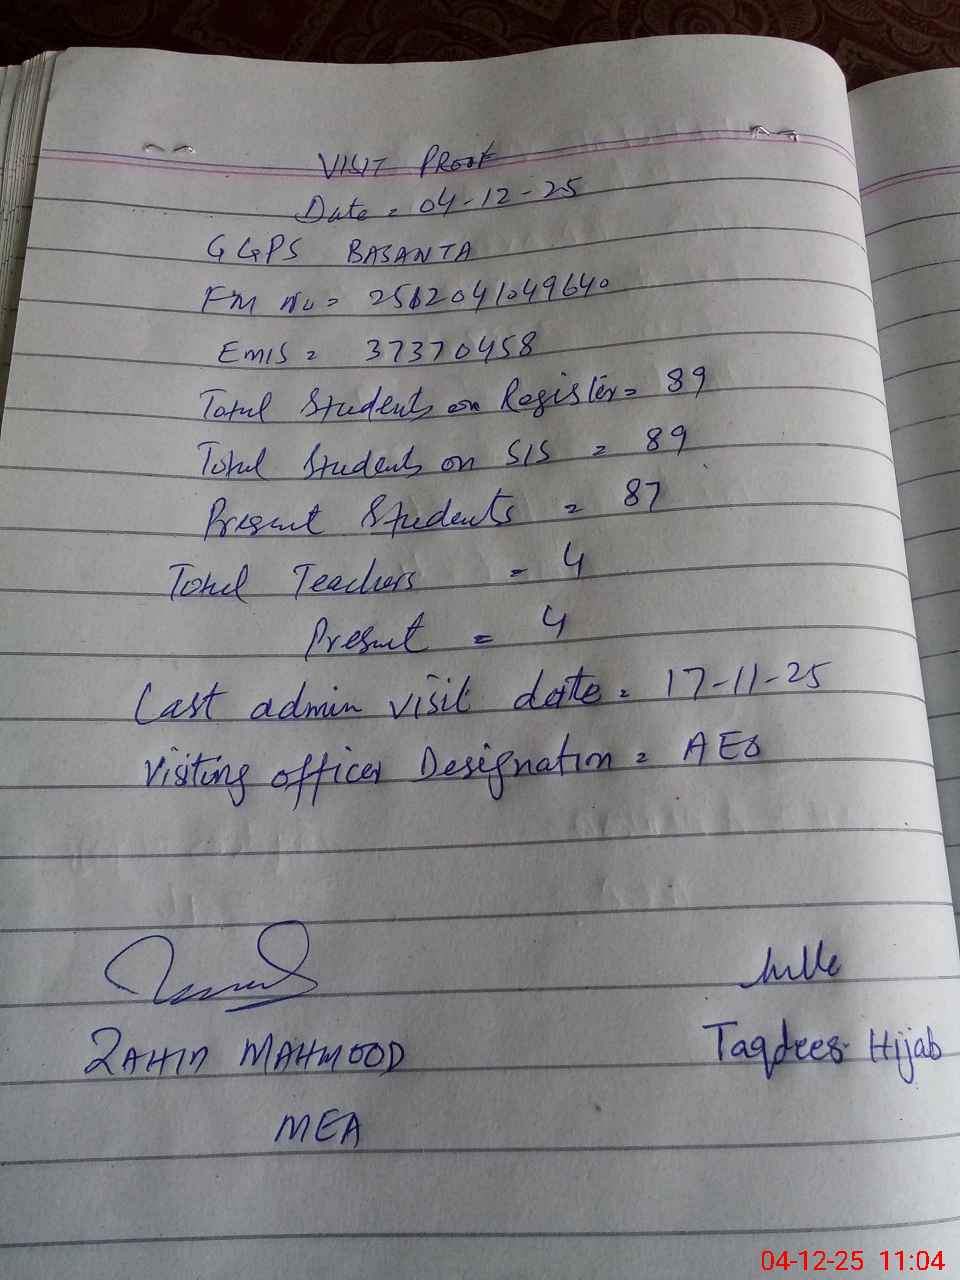 VISIT PROOF
Date = 04-12-25
GGPS BASANTA
FM No = 2512041049640
EMIS = 37370458
Total Students on Register = 89
Total Students on SIS = 89
Present Students = 87
Total Teachers = 4
Present = 4
Last admin visit date = 17-11-25
Visiting officer Designation = AEO
MAHMOOD
Taqdees Hijab
MEA
04-12-25 11:04